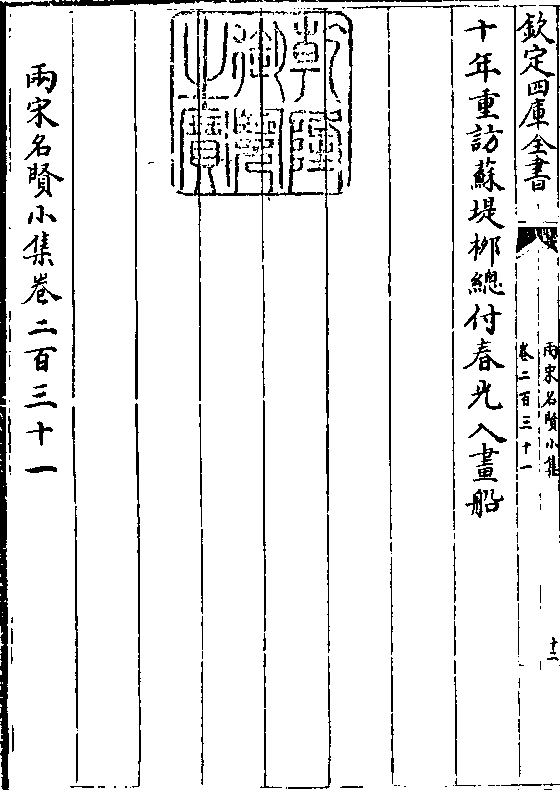 欽定四庫全書
兩宋名賢小集
卷二百三十一
十二
十年重訪蘇堤栁總付春光入畫船
乾隆御覽之寶
兩宋名賢小集卷二百三十一